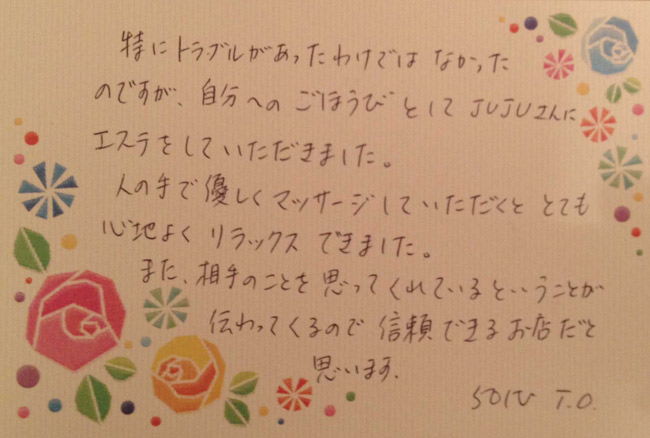 特にトラブルがあったわけではなかった
のですが、自分へのごほうびとしてJUJUさんに
エステをしていただきました。
人の手で優しくマッサージしていただくととても
心地よくリラックスできました。
また、相手のことを思ってくれているということが
伝わってくるので信頼できるお店だと
思います。
50代 T.O.